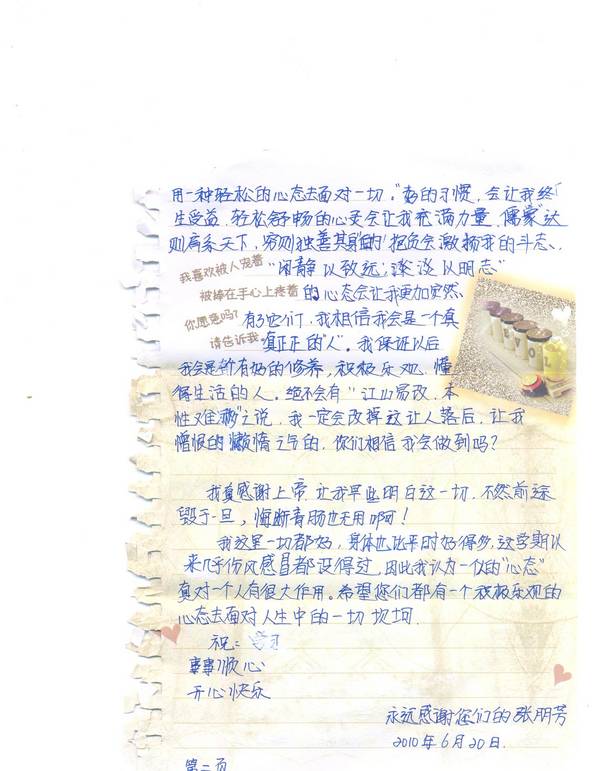 用一种轻松的心态去面对一切。"好的习惯，会让我终
生受益，轻松舒畅的心灵会让我充满力量，儒家"达
则兼济天下，穷则独善其身"的抱负会激扬我的斗志、
我喜欢被人宠着
"闲静以致远，淡泊以明志"
被棒在手心上疼着
的心态会让我更加安然、
你愿意吗?
有了它们，我相信我会是一个真
请告诉我
真正正的"人"。我保证以后
我会是价有好的修养，积极乐观、懂
得生活的人。绝不会有"江山易改，本
性难移"之说，我一定会改掉这让人落后，让我
憎恨的懒惰之气的，你们相信我会做到吗?
我真感谢上帝，让我早些明白这一切，不然前途
毁于一旦，悔断青肠也无用啊!
我这里一切都好，身体也比平时好得多，这学期以
来几乎伤风感冒都没得过，因此我认为一似的"心态"
真对一个人有很大作用。希望您们都有一个积极乐观的
心态去面对人生中的一切坎坷.
祝:
事事顺心
开心快乐
永远感谢您们的张朋芳
2010年6月20日.
第二页